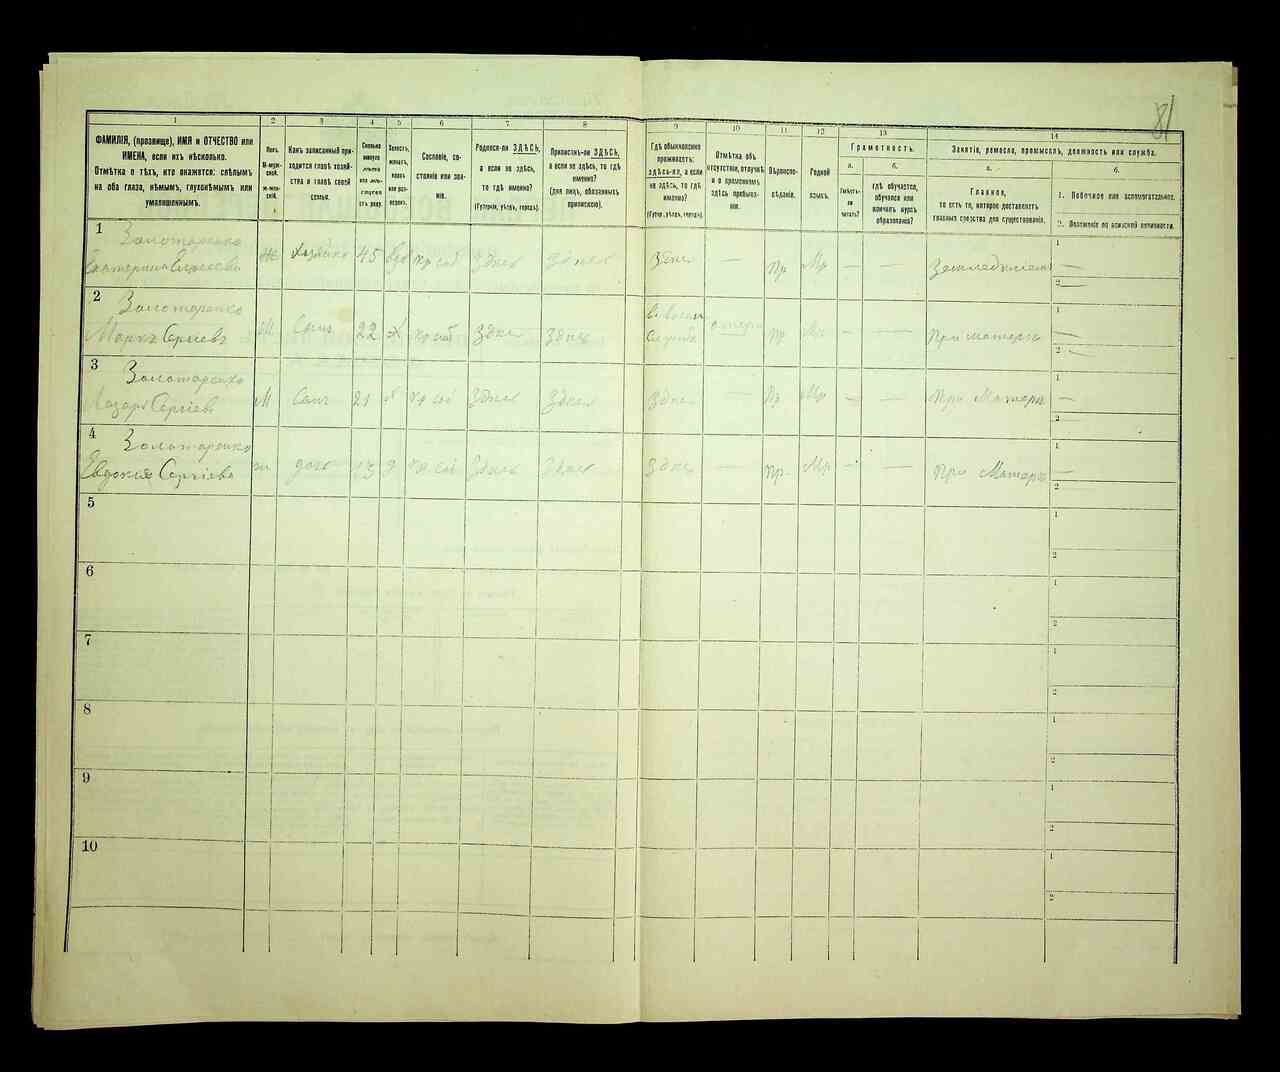 81
1
2
3
4
5
6
7
8
9
10
11
12
13
14
ФАМИЛІЯ, (прозвище), ИМЯ и ОТЧЕСТВО или
ИМЕНА, если ихъ нѣсколько.
Отмѣтка о тѣхъ, кто окажется: слѣпымъ
на оба глаза, нѣмымъ, глухонѣмымъ или
умалишеннымъ.
Полъ.
М-муж-
ской.
ж-жен-
скій.
Какъ записанный при-
ходится главѣ хозяй-
ства и главѣ своей
семьи.
Сколько
минуло
лѣтъ
или мѣ-
сяцевъ
отъ роду.
Холостъ,
женатъ,
вдовъ
или раз-
веденъ.
Сословіе, со-
стояніе или зва-
ніе.
Родился-ли ЗДѢСЬ,
а если не здѣсь,
то гдѣ именно?
(Губернія, уѣздъ, городъ).
Приписанъ-ли ЗДѢСЬ,
а если не здѣсь, то гдѣ
именно?
(для лицъ, обязанныхъ
припискою).
Гдѣ обыкновенно
проживаетъ:
здѣсь-ли, а если
не здѣсь, то гдѣ
именно?
(Губер., уѣздъ, городъ).
Отмѣтка объ
отсутствіи, отлучкѣ
и о временномъ
здѣсь пребыва-
ніи.
Вѣроиспо-
вѣданіе.
Родной
языкъ.
Грамотность.
а.
б.
Умѣетъ-
ли
читать?
гдѣ обучается,
обучался или
кончилъ курсъ
образованія?
Занятіе, ремесло, промыселъ, должность или служба.
а.
б.
Главное,
то есть то, которое доставляетъ
главныя средства для существованія.
1. Побочное или вспомогательное.
2. Положеніе по воинской повинности.
1
Золотаренко
Екатерина Елисеева
Же Хозяйка 45 вдо кр соб Здесь Здесь Здесь — Пр Мр — — Земледелием
1 —
2 —
2
Золотаренко
Маркъ Сергіевъ
М Сынъ 22 х кр соб Здесь Здесь Служба Пр Мр — — При матери
1 —
2 —
3
Золотаренко
Лазарь Сергіевъ
М Сынъ 21 х кр соб Здесь Здесь Здесь — Пр Мр — — При Матери
1 —
2
4
Золотаренко
Евдокія Сергіева
ж доч 13 д кр соб Здесь Здесь Здесь — Пр. Мр — — При Матери
1 —
2
5
1
2
6
1
2
7
1
2
8
1
2
9
1
2
10
1
2